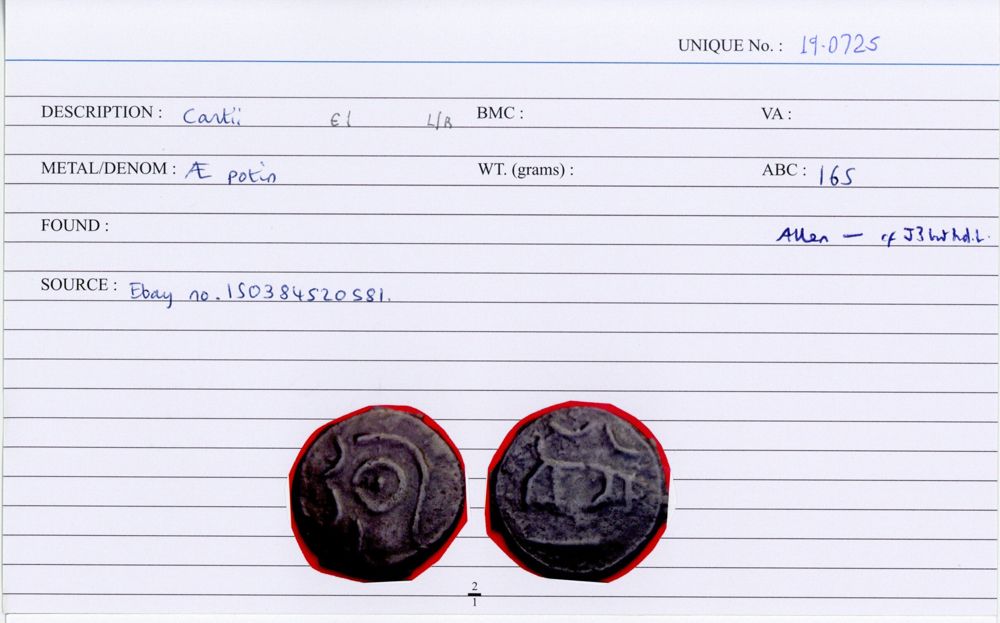 UNIQUE No. : 19-0725
DESCRIPTION : Cantii E1 L/R BMC : VA :
METAL/DENOM : Æ potin WT. (grams) : ABC : 165
FOUND :
Allen — cf J3 but hd.L.
SOURCE : Ebay no. 150384520581.
2
1